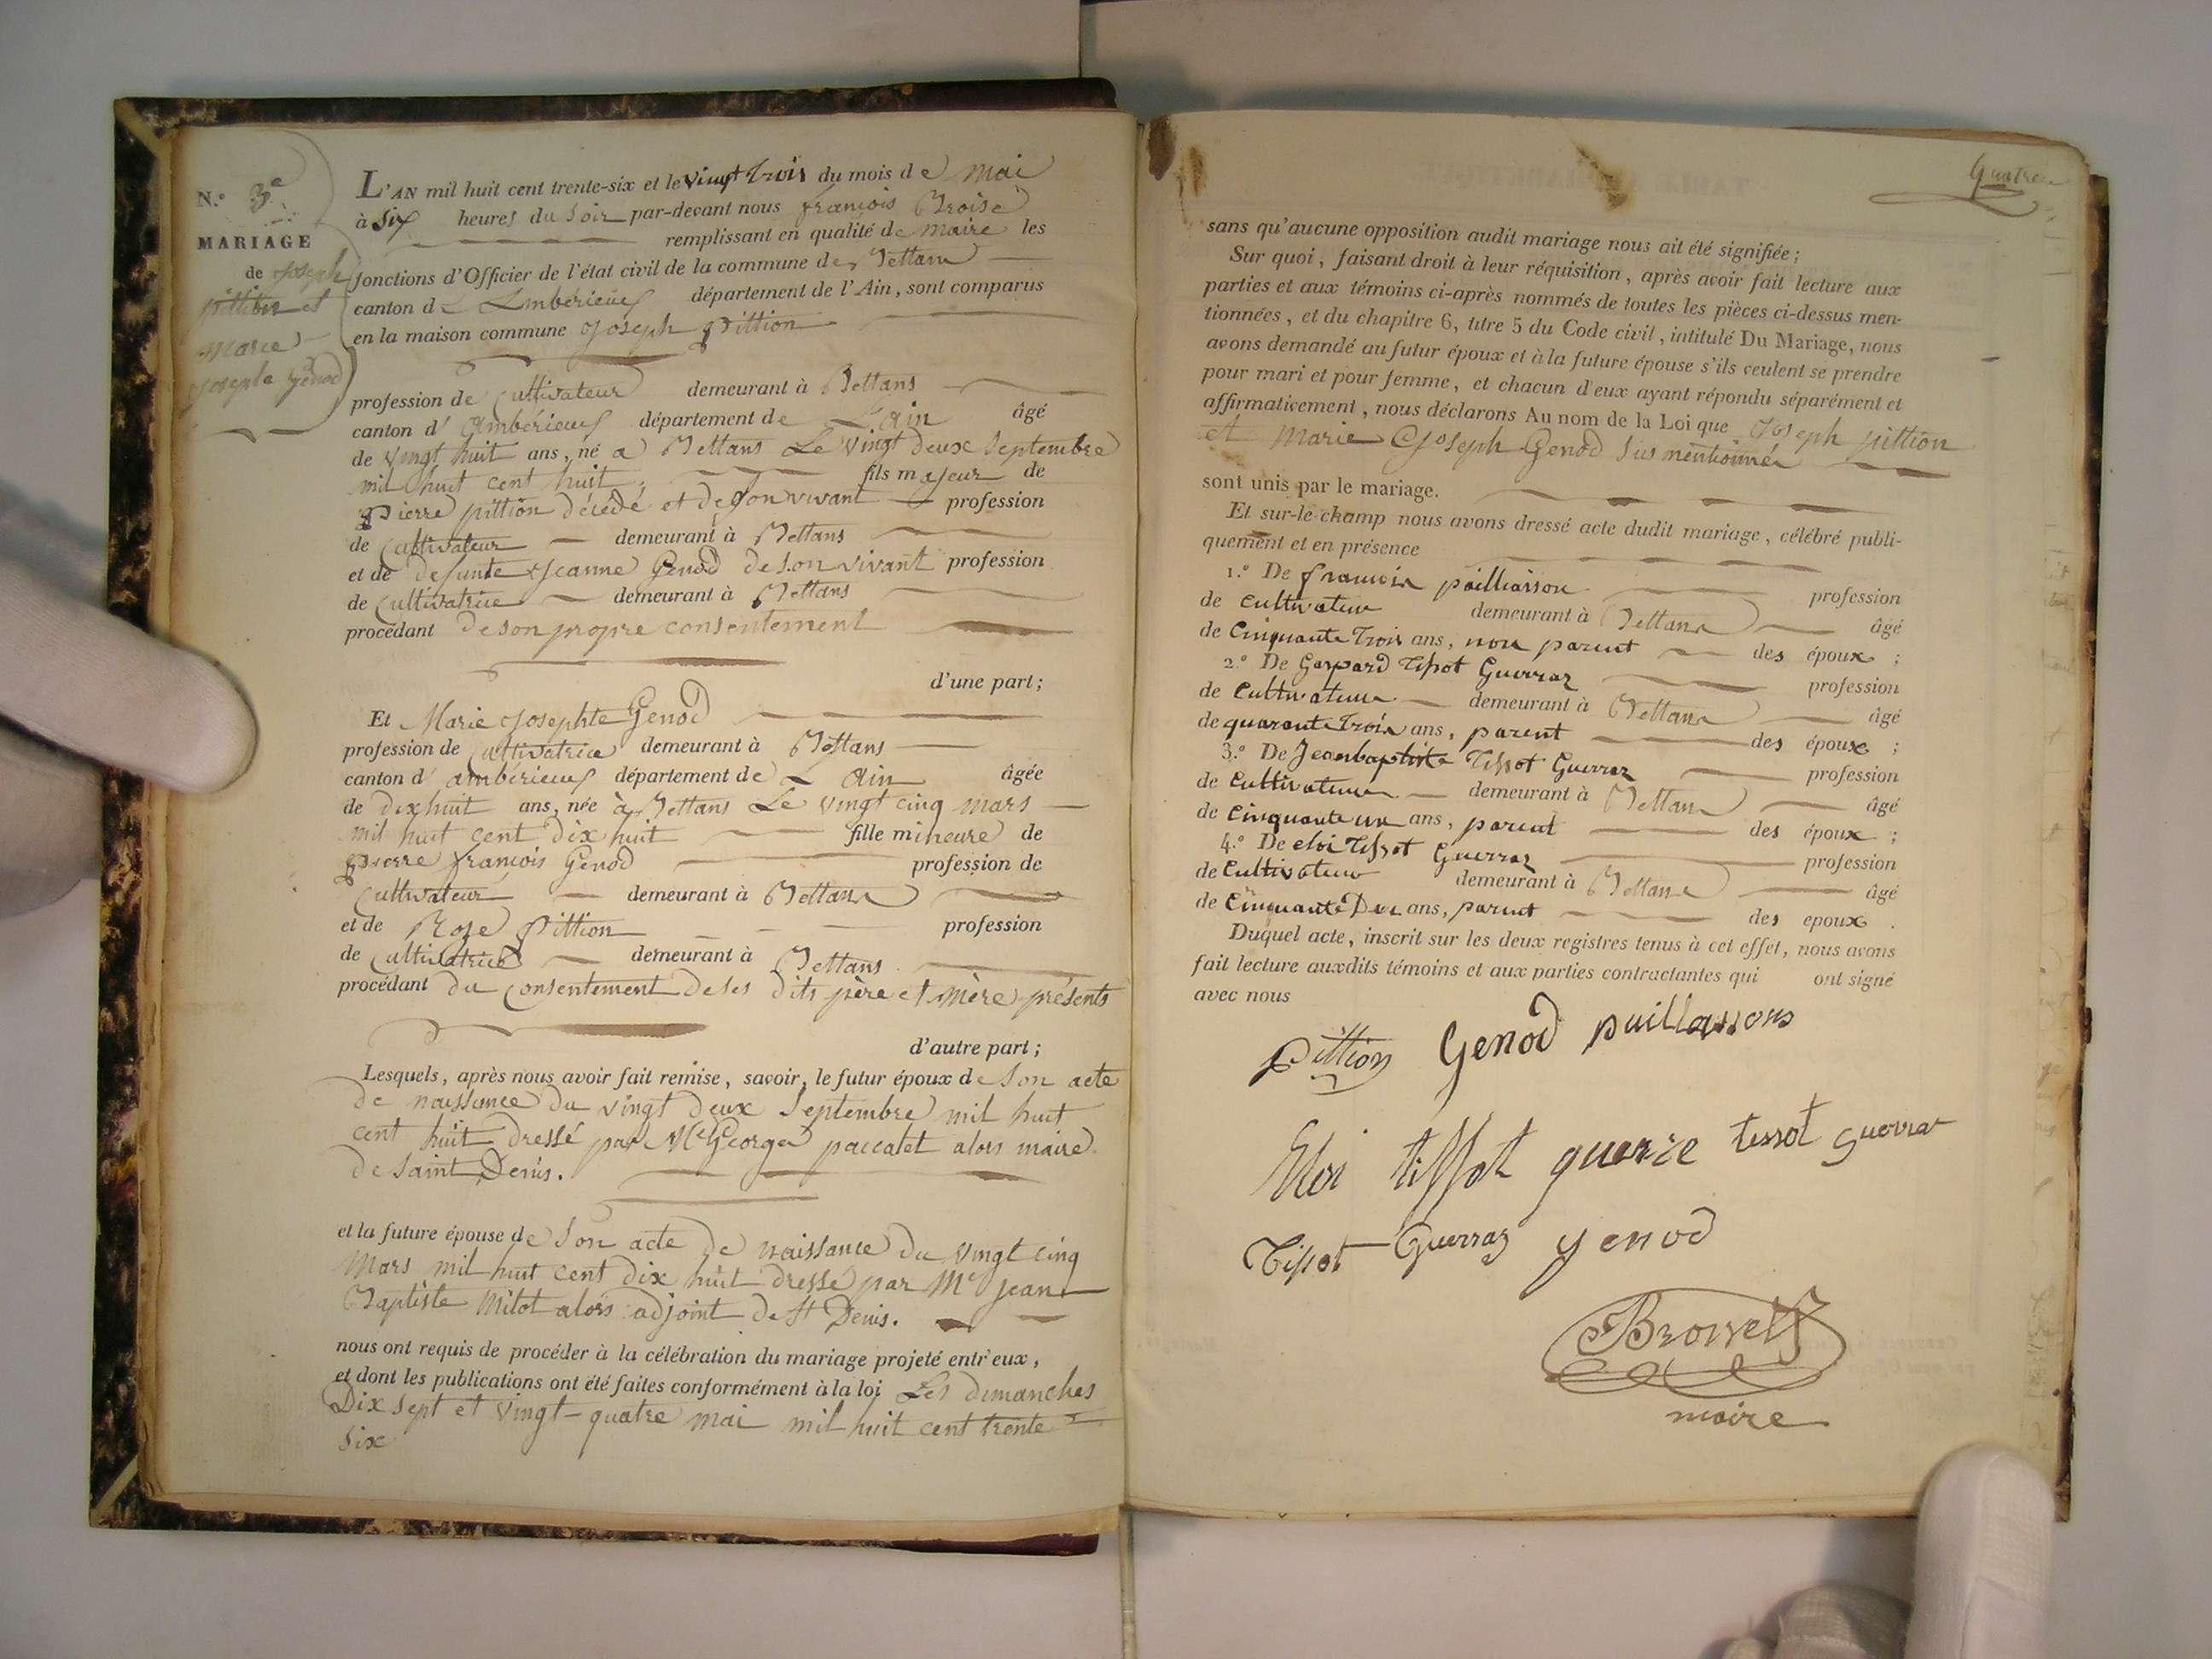 N.º 3e
MARIAGE
de Joseph
pittion et
marie
Josephte Genod
L'AN mil huit cent trente-six et le vingt trois du mois de mai
à six heures du soir par-devant nous françois Broise
remplissant en qualité de maire les
fonctions d'Officier de l'état civil de la commune de Bettans
canton d' Ambérieux département de l'Ain, sont comparus
en la maison commune Joseph Pittion
profession de Cultivateur demeurant à Bettans
canton d' Ambérieux département de L'Ain âgé
de vingt huit ans, né a Bettans Le vingt deux Septembre
mil huit cent huit, fils majeur de
Pierre pittion décédé et de son vivant profession
de Cultivateur demeurant à Bettans
et de defunte Jeanne Genod de son vivant profession
de Cultivatrice demeurant à Bettans
procédant de son propre consentement
d'une part;
Et Marie Josephte Genod
profession de Cultivatrice demeurant à Bettans
canton d' ambérieux département de L'Ain âgée
de dix huit ans, née à Bettans Le vingt cinq mars
mil huit cent dix huit fille mineure de
Pierre françois Genod profession de
Cultivateur demeurant à Bettans
et de Rose Pittion profession
de Cultivatrice demeurant à Bettans
procédant du Consentement de ses dits père et mère présents
d'autre part;
Lesquels, après nous avoir fait remise, savoir, le futur époux de Son acte
de naissance du vingt deux Septembre mil huit
cent huit dressé par Me George paccalet alors maire
de Saint Denis.
et la future épouse de Son acte de naissance du vingt cinq
Mars mil huit cent dix huit dressé par Me Jean
Baptiste Milot alors adjoint de St Denis.
nous ont requis de procéder à la célébration du mariage projeté entr'eux,
et dont les publications ont été faites conformément à la loi Les dimanches
Dix sept et vingt-quatre mai mil huit cent trente
six
Quatre
sans qu'aucune opposition audit mariage nous ait été signifiée;
Sur quoi, faisant droit à leur réquisition, après avoir fait lecture aux
parties et aux témoins ci-après nommés de toutes les pièces ci-dessus men-
tionnées, et du chapitre 6, titre 5 du Code civil, intitulé Du Mariage, nous
avons demandé au futur époux et à la future épouse s'ils veulent se prendre
pour mari et pour femme, et chacun d'eux ayant répondu séparément et
affirmativement, nous déclarons Au nom de la Loi que Joseph pittion
et Marie Joseph Genod sus mentionnés
sont unis par le mariage.
Et sur-le-champ nous avons dressé acte dudit mariage, célébré publi-
quement et en présence
1.º De françois pailliasson profession
de Cultivateur demeurant à Bettans âgé
de Cinquante Trois ans, non parent des époux;
2.º De Gaspard Tissot Guerraz profession
de Cultivateur demeurant à Bettans âgé
de quarante Trois ans, parent des époux;
3.º De Jeanbaptiste Tissot Guerraz profession
de Cultivateur demeurant à Bettans âgé
de Cinquante un ans, parent des époux;
4.º De eloi Tissot Guerraz profession
de Cultivateur demeurant à Bettans âgé
de Cinquante Deux ans, parent des epoux.
Duquel acte, inscrit sur les deux registres tenus à cet effet, nous avons
fait lecture auxdits témoins et aux parties contractantes qui ont signé
avec nous
Pittion Genod paillassons
Eloi tissot guerre tissot guerra
Tissot Guerraz genod
Broise
maire